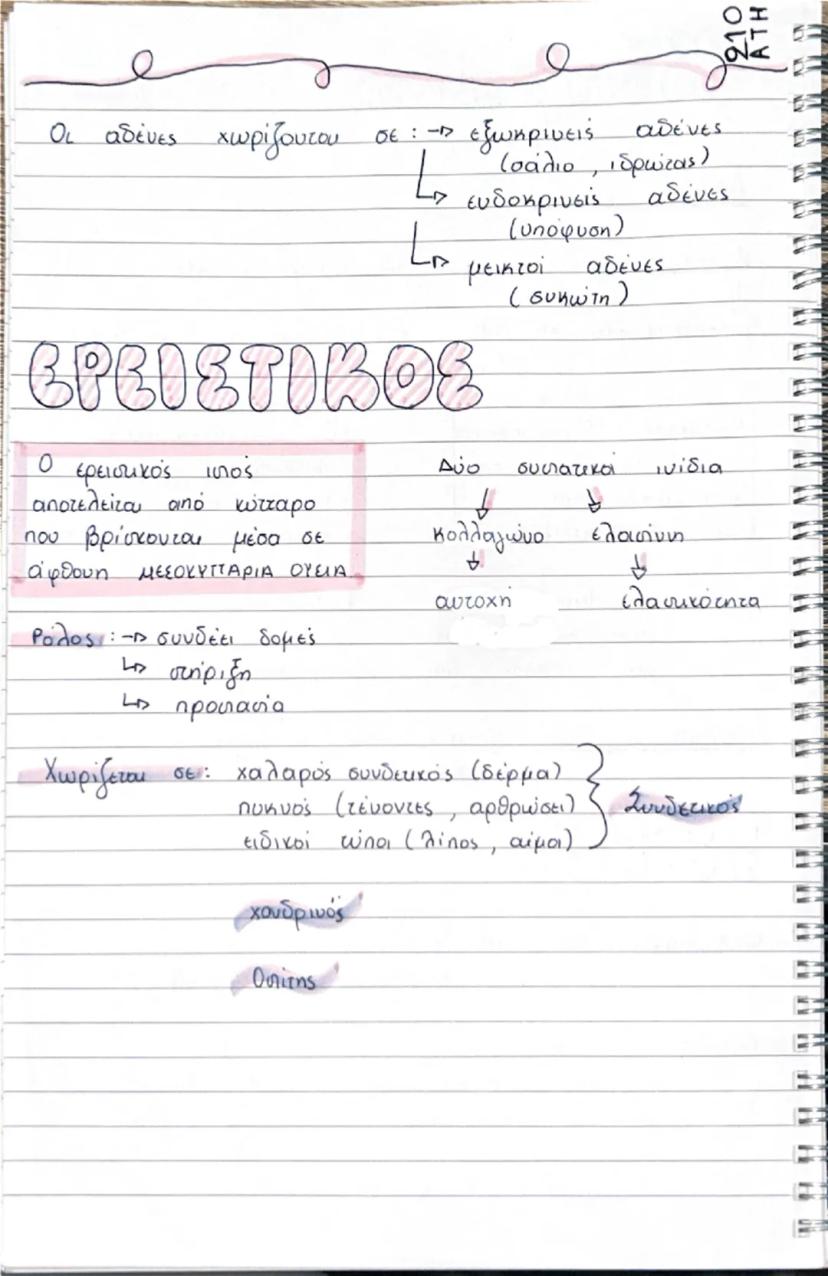 210
ΑΤΗ
Οι αδένες χωρίζονται σε : → εξωκρινείς αδένες
(σάλιο , ιδρώτας)
ενδοκρινείς αδένες
(υπόφυση)
μεικτοί αδένες
( συκώτη )
ΕΡΕΙΣΤΙΚΟΣ
Ο ερειστικός ιστός
αποτελείται από κύτταρο
που βρίσκονται μέσα σε
άφθονη ΜΕΣΟΚΥΤΤΑΡΙΑ ΟΥΣΙΑ
Δύο συστατικοί ινίδια
κολλαγόνο ελαστίνη
αντοχή ελαστικότητα
Ρόλος : → συνδέει δομές
στήριξη
προστασία
Χωρίζεται σε : χαλαρός συνδετικός (δέρμα)
πυκνός (τένοντες , αρθρώσει)
ειδικοί τύποι ( λίπος , αίμα )
Συνδετικός
χονδρινός
Οστίτης